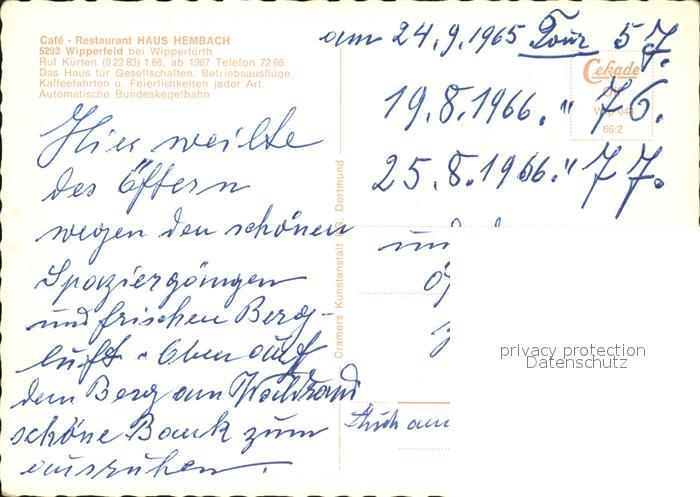 Café - Restaurant HAUS HEMBACH
5293 Wipperfeld bei Wipperfürth
Ruf Kürten (0 22 83) 1 66, ab 1967 Telefon 72 66
Das Haus für Gesellschaften, Betriebsausflüge,
Kaffeefahrten u. Feierlichkeiten jeder Art.
Automatische Bundeskegelbahn
Hier weilte
des öftern
wegen den schönen
Spaziergängen
und frischen Berg-
luft. Oben auf
dem Berg am Waldrand
schöne Bank zum
ausruhen.
Cramers Kunstanstalt KG. Dortmund
am 24.9.1965 Tour 57.
Cekade
19.8.1966. " 76.
66/2
25.8.1966. " 77.
und
Auch am
privacy protection
Datenschutz